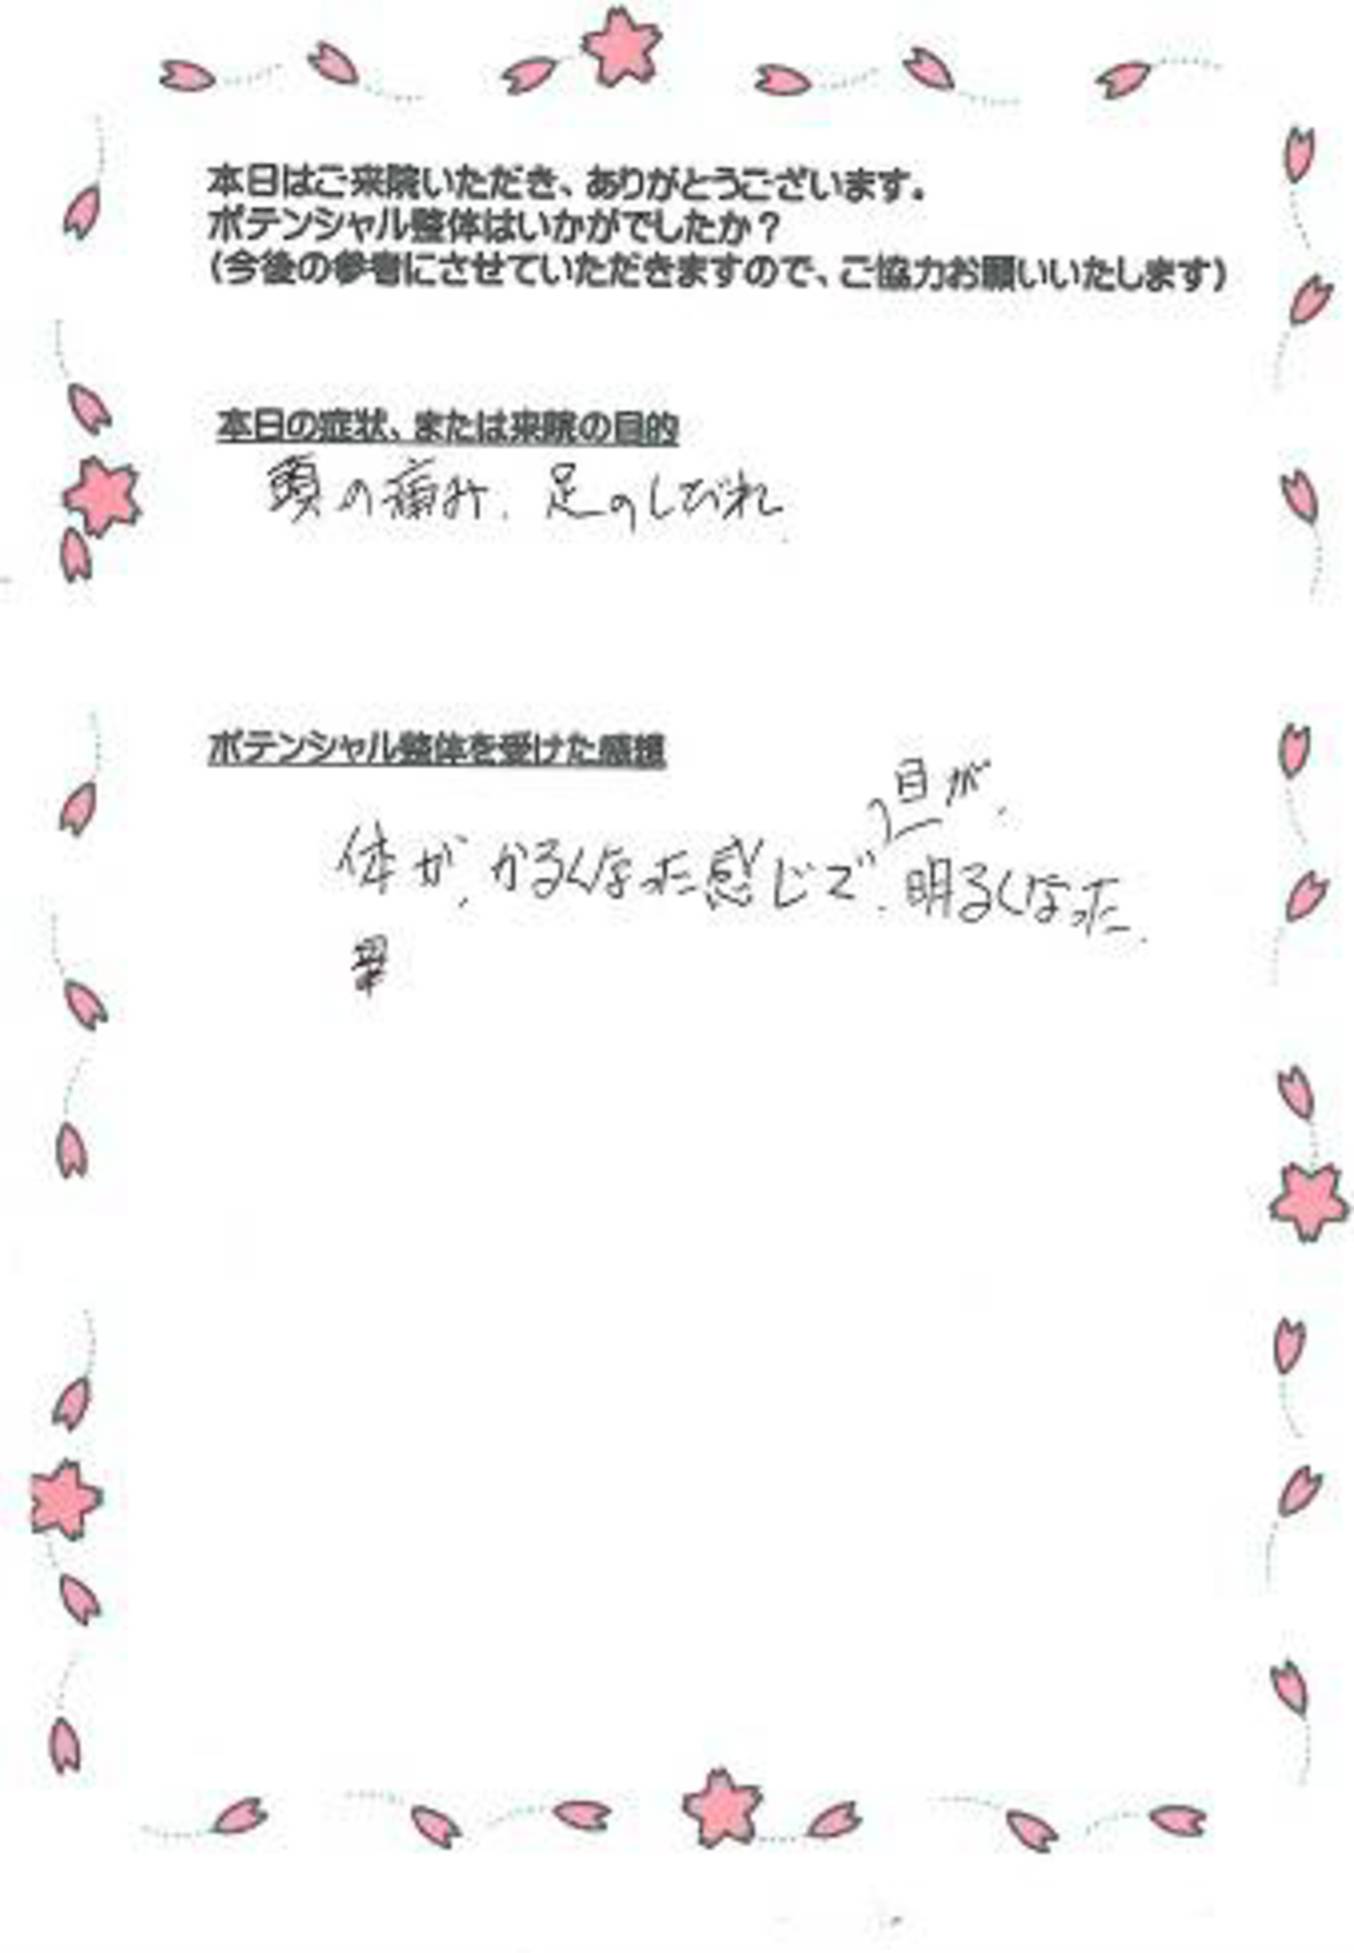 本日はご来院いただき、ありがとうございます。
ポテンシャル整体はいかがでしたか？
(今後の参考にさせていただきますので、ご協力お願いいたします)
本日の症状、または来院の目的
頭の痛み、足のしびれ
ポテンシャル整体を受けた感想
目が、
体が、かるくなった感じで、明るくなった。